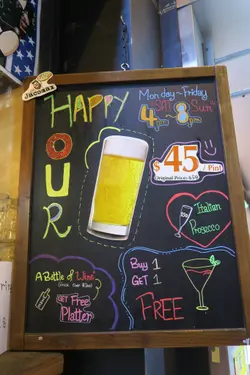 Jacomax
HAPPY
HOUR
Monday~Friday
SAT Sun
4pm ~ 8pm
$45 /Pint
Original Price: $
Italian
Prosecco
A Bottle of Wine
GET Free
Platter
Buy 1
GET 1
FREE